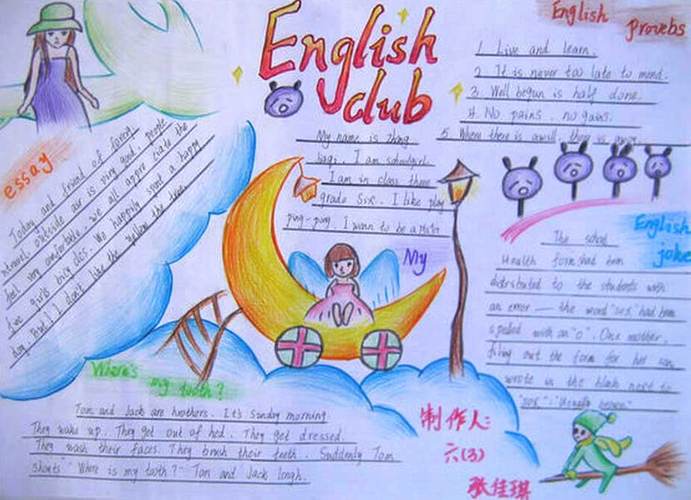 English
club
English
proverbs
1. Live and learn.
2. It is never too late to mend.
3. Well begun is half done.
4. No pains, no gains.
5. Where there is a will, there is
My name is Zhang
I am schoolgirl.
I am in class three
grade six. I like play
ping-pong. I want to be a
My
essay
Today and friend of
travel, outside air is very good, people
feel very comfortable, we all appreciate the
two girls We happily spent a happy
day. But I don't like the
English
joke
The school
Health form had been
distributed to the students with
an error — the word "sex" had been
spelled with an "o". One mother,
filling out the form for her son,
wrote in the blank next to
Where's
my tooth?
Tom and Jack are brothers. It's Sunday morning.
They wake up. They get out of bed. They get dressed.
They wash their faces. They brush their teeth. Suddenly Tom
shouts "Where is my tooth?" Tom and Jack laugh.
制作人:
六(3)
张佳琪